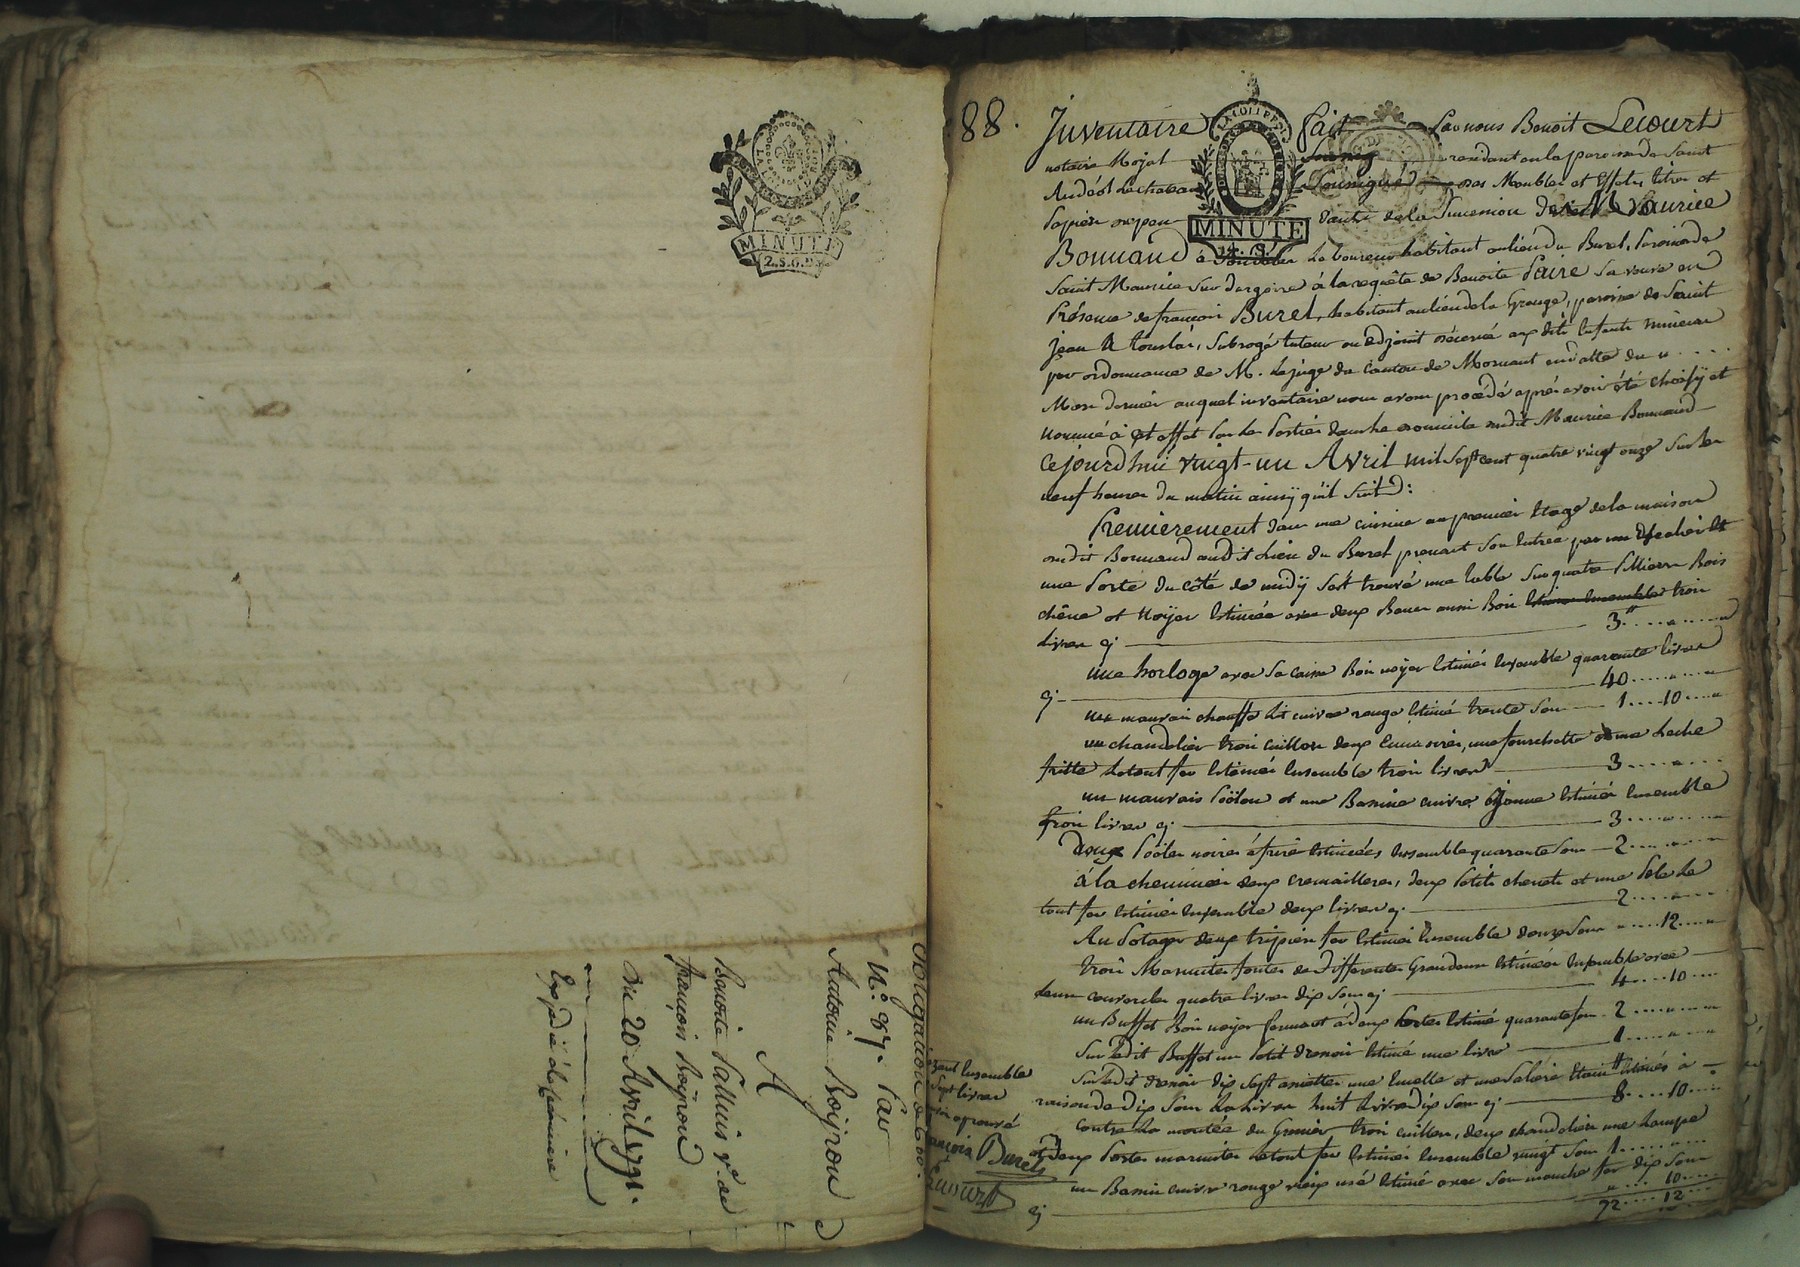 MINUTE
2.S.6.D.
Obligation de 600
N.° 87. Par
Antoine Boiron
A
Benoite Palluis v.e de
François Boiron
Du 20 Avril 1791.
Expédié à la première
88.
Inventaire fait Par nous Benoit Lecourt
notaire Royal soussigné residant en la paroisse de Saint
Andéol le chateau soussigné des Meubles et Effets titres et
Papiers dependants de la Succession de Maurice
MINUTE
Bonnand Laboureur habitant au lieu du Burel, Paroisse de
Saint Maurice sur dargoire à la requête de Benoite Faire Sa veuve en
Présence de françois Burel, habitant au lieu de la Grange, paroisse de Saint
jean de touslas, subrogé tuteur ou adjoint décerné aux dits Enfants mineurs
par ordonnance de M. Le juge du Canton de Mornant en datte du
Mars dernier auquel inventaire nous avons procédé après avoir été choisÿ et
nommé à cet effet par les Parties dans le domicile dudit Maurice Bonnand
Cejourd'hui vingt-un Avril mil Sept cent quatre vingt onze sur les
neuf heures du matin ainsÿ qu'il suit :
Premierement dans une cuisine au premier Etage de la maison
dudit Bonnand audit Lieu du Burel prenant son Entrée par un Escalier et
une Porte du côté de midÿ s'est trouvé une table sur quatre Pilliers Bois
chêne et noÿer Estimée avec deux Bancs aussi Bois Estimés Ensemble trois
Livres cj 3 ₶
une horloge avec sa caisse Bois noyer Estimés Ensemble quarante livres
cj 40
un mauvais chauffe Lit cuivre rouge Estimé trente sous 1 10
un chandelier trois cuillers deux Ecumoires, une fourchette et une Leche
fritte Letout fer Estimés Ensemble trois livres 3
un mauvais Poëlon et une Bassine cuivre Jaune Estimés Ensemble
trois livres cj 3
Deux Poëles noires à frire Estimées Ensemble quarante sous 2
à la cheminée deux cremailleres, deux Petits chenets et une Pele Le
tout fer Estimés Ensemble deux livres cj 2
Au Potager deux trépiés fer Estimés Ensemble douze sous 12
trois Marmites fontes de Differentes Grandeurs Estimées Ensemble avec
Leurs couvercles quatre livres dix sous cj 4 10
un Buffet Bois noyer fermant à deux Portes Estimé quarante sous 2
Sur ledit Buffet un Petit dressoir Estimé une livre 1
Sur ledit dressoir dix sept assiettes une Ecuelle et une Salière Etain Estimés à
raison de dix sous La livre huit Livres dix sous cj 8 10
Contre La montée du Grenier trois cuillers, deux chandeliers une Lampe
et deux Portes marmites Letout fer Estimés Ensemble vingt sous 1
un Bassin cuivre rouge vieux usé Estimé avec son manche fer dix sous
cj 10
72 12
Ensemble
Sept livres
approuvé
françois Burel
Lecourt